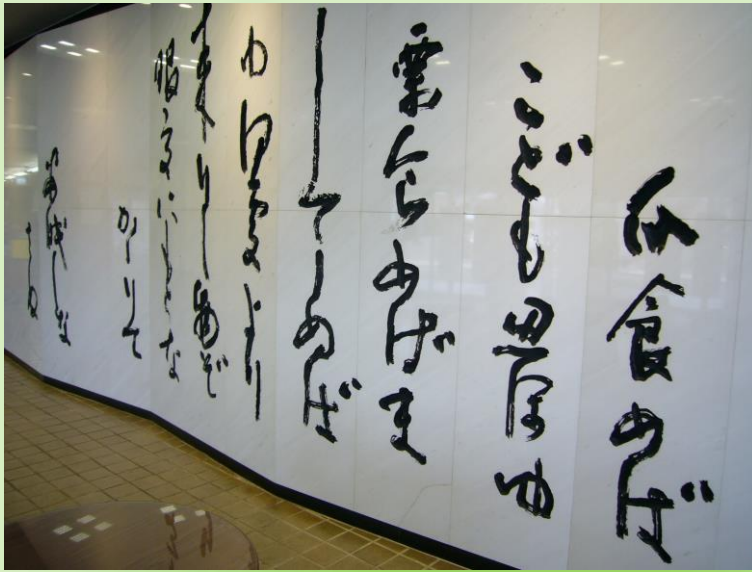 瓜食めば
こども思ほゆ
栗食めばま
してしぬば
ゆ何処より
来りし物ぞ
眼交にもとな
かかりて
安眠しな
さぬ